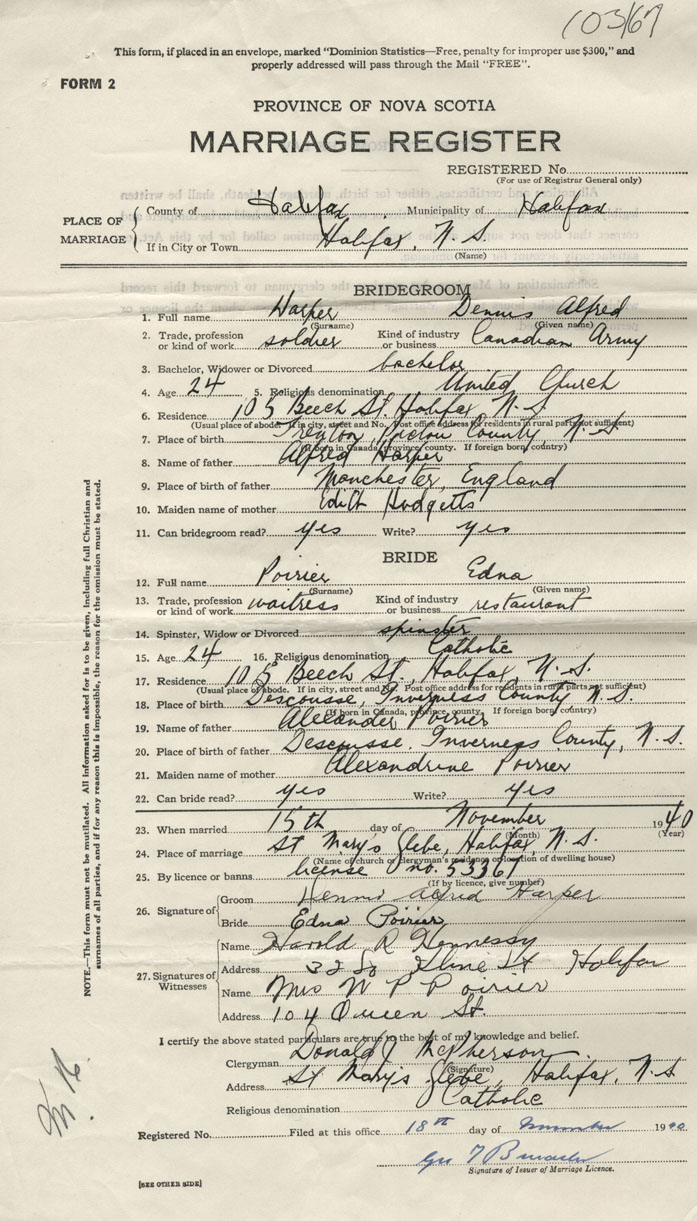 103/67
This form, if placed in an envelope, marked "Dominion Statistics—Free, penalty for improper use $300," and
properly addressed will pass through the Mail "FREE".
FORM 2
PROVINCE OF NOVA SCOTIA
MARRIAGE REGISTER
REGISTERED No.
(For use of Registrar General only)
PLACE OF MARRIAGE
County of Halifax Municipality of Halifax
If in City or Town Halifax, N.S.
(Name)
BRIDEGROOM
1. Full name Harper Dennis Alfred
(Surname) (Given name)
2. Trade, profession or kind of work soldier Kind of industry or business Canadian Army
3. Bachelor, Widower or Divorced bachelor
4. Age 24 5. Religious denomination United Church
6. Residence 105 Beech St. Halifax N.S.
(Usual place of abode. If in city, street and No. Post office address for residents in rural parts not sufficient)
7. Place of birth Trenton, Pictou County N.S.
(If born in Canada, province, county. If foreign born, country)
8. Name of father Alfred Harper
9. Place of birth of father Manchester, England
10. Maiden name of mother Edith Hodgetts
11. Can bridegroom read? yes Write? yes
BRIDE
12. Full name Poirier Edna
(Surname) (Given name)
13. Trade, profession or kind of work waitress Kind of industry or business restaurant
14. Spinster, Widow or Divorced spinster
15. Age 24 16. Religious denomination Catholic
17. Residence 105 Beech St., Halifax N.S.
(Usual place of abode. If in city, street and No. Post office address for residents in rural parts not sufficient)
18. Place of birth Descousse, Inverness County N.S.
(If born in Canada, province, county. If foreign born, country)
19. Name of father Alexander Poirier
20. Place of birth of father Descousse, Inverness County, N.S.
21. Maiden name of mother Alexandrine Poirier
22. Can bride read? yes Write? yes
23. When married 15th day of November 1940
(Month) (Year)
24. Place of marriage St Mary's Glebe, Halifax N.S.
(Name of church or clergyman's residence or location of dwelling house)
25. By licence or banns license no. 53361
(If by licence, give number)
26. Signature of
Groom Dennis Alfred Harper
Bride Edna Poirier
27. Signatures of Witnesses
Name Harold R Hennessy
Address Kline St Halifax
Name Mrs W P Poirier
Address 104 Queen St.
I certify the above stated particulars are true to the best of my knowledge and belief.
Clergyman Donald J McPherson
(Signature)
Address St Mary's Glebe, Halifax, N.S
Religious denomination Catholic
Registered No. Filed at this office 18th day of November 1940
Geo T
Signature of Issuer of Marriage Licence.
[SEE OTHER SIDE]
NOTE.—This form must not be mutilated. All information asked for is to be given, including full Christian and
surnames of all parties, and if for any reason this is impossible, the reason for the omission must be stated.